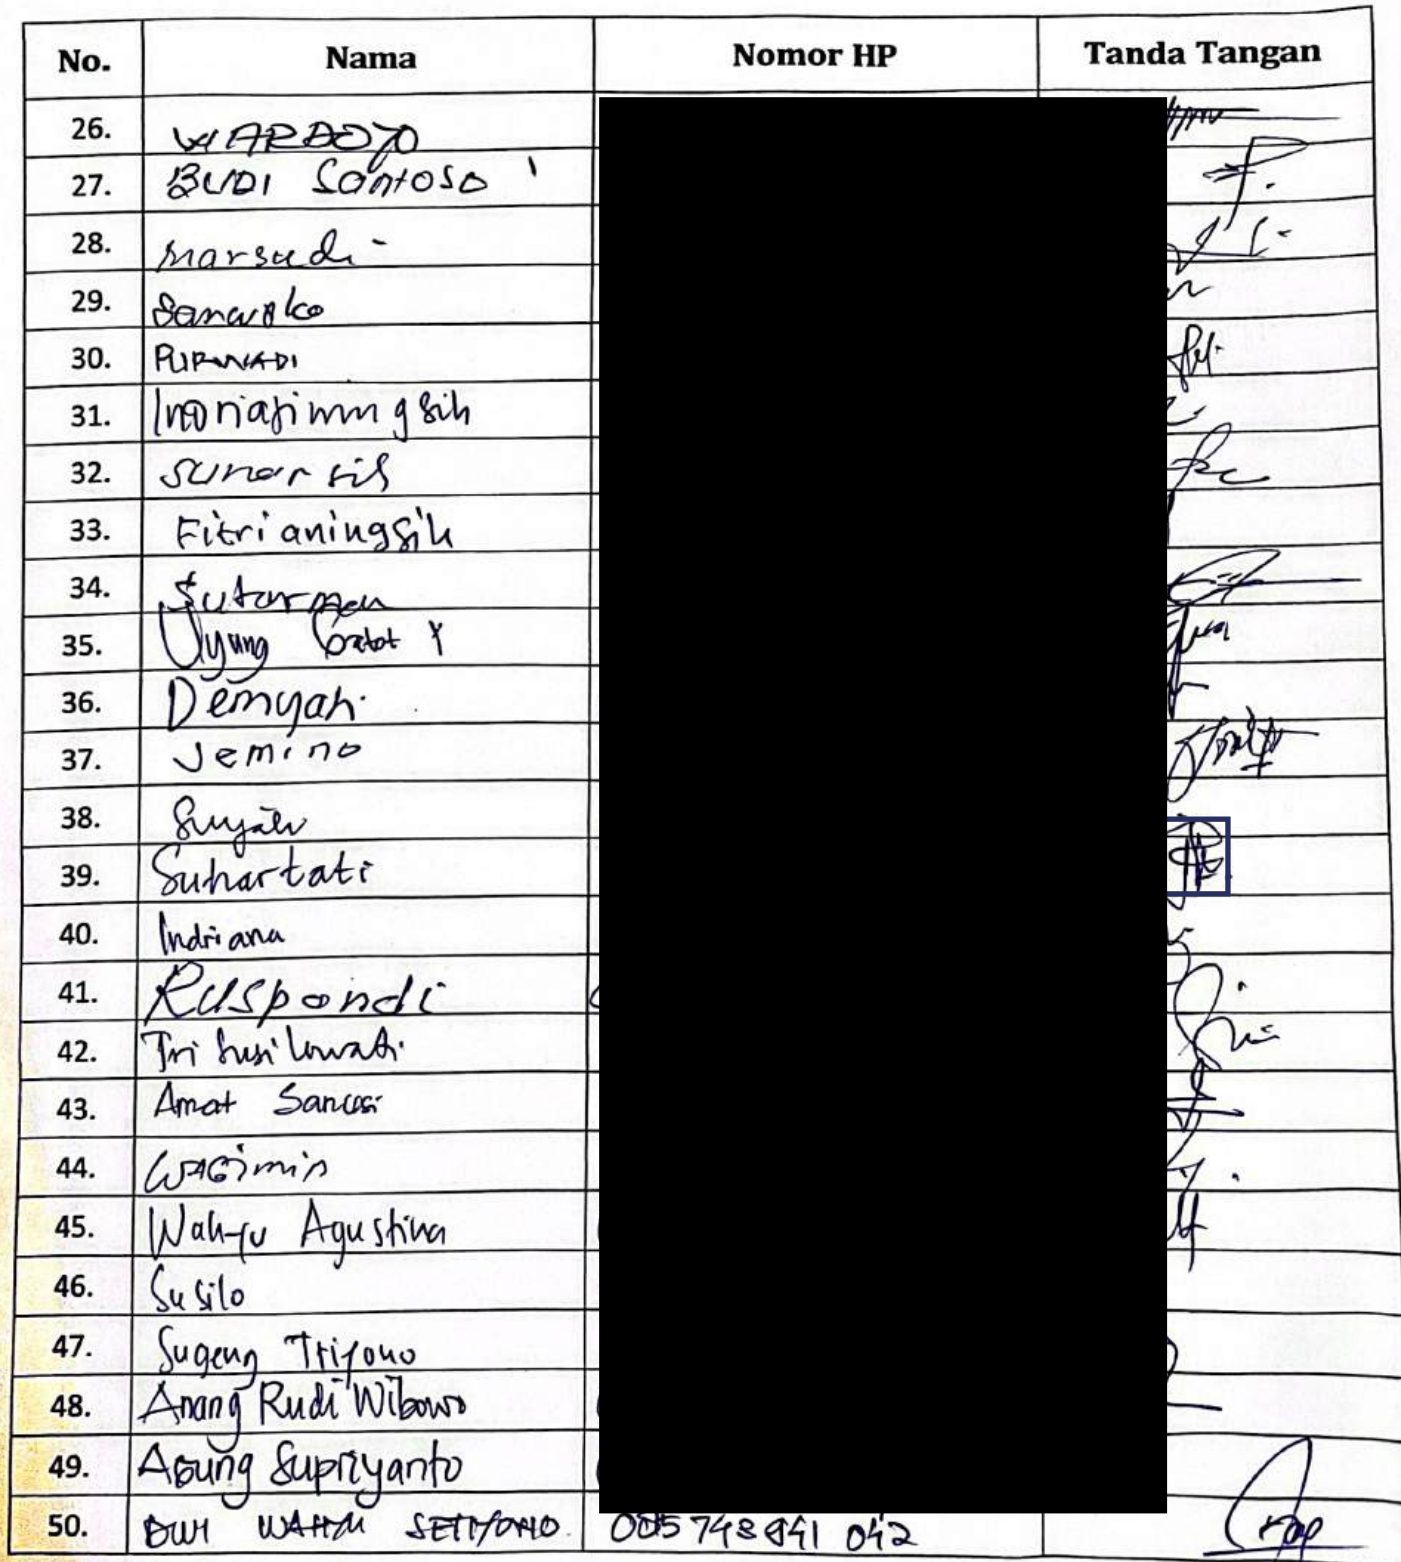 No. Nama Nomor HP Tanda Tangan
26. WARDOYO
27. BUDI Santoso
28. Marsudi
29. Sanarko
30. PURWADI
31. ningsih
32. sunarsih
33. Fitrianingsih
34. Sutarman
35. Gatot Y
36. Demyati
37. Jemino
38.
39. Suhartati
40. Indriana
41. Ruspandi
42. Tri Susilowati
43. Amat Sanusi
44. WAGimin
45. Wahyu Agustina
46. Susilo
47. Sugeng Triyono
48. Anang Rudi Wibowo
49. Agung Supriyanto
50. DWI SETIYONO